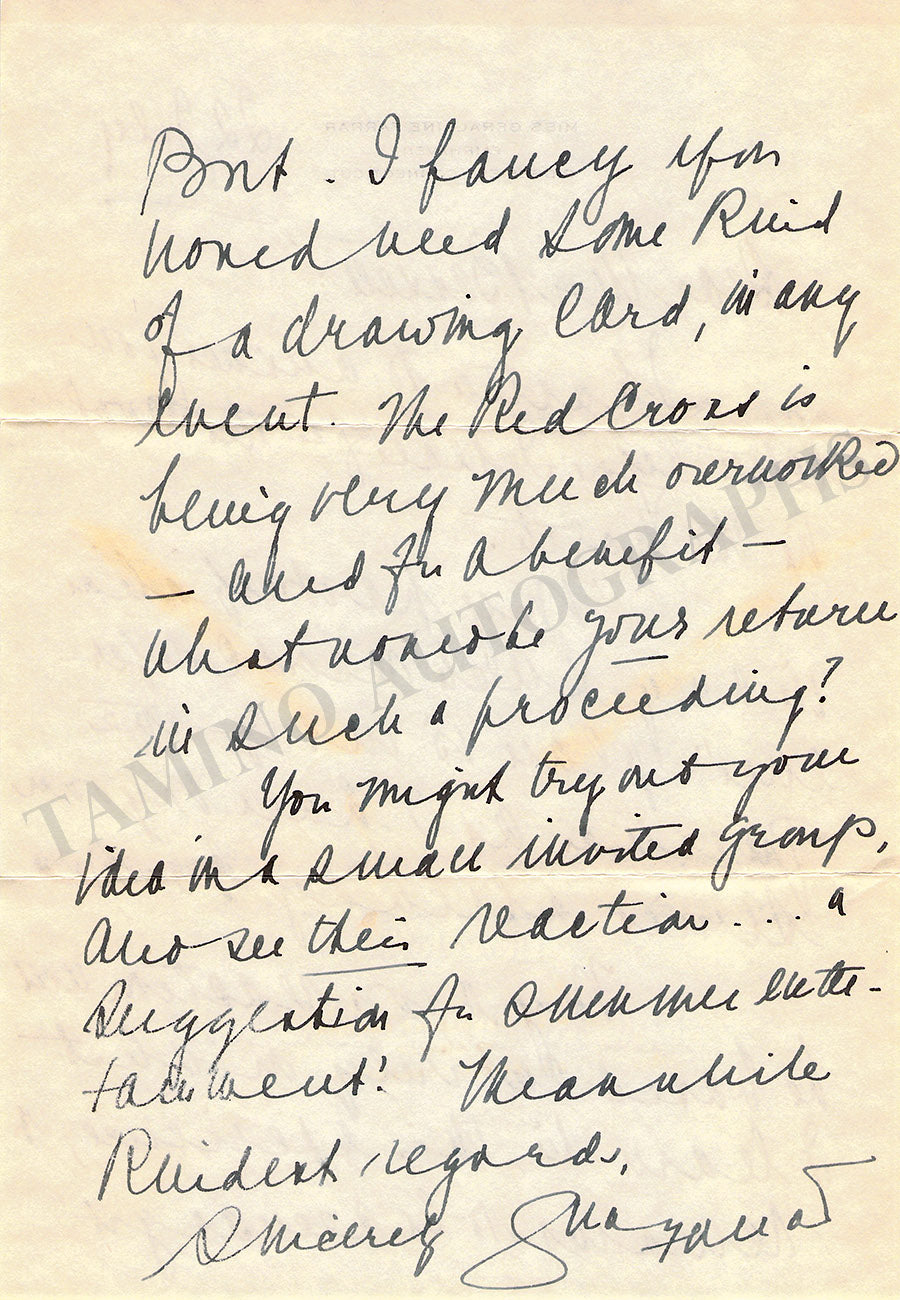 But. I fancy you
would need some kind
of a drawing card, in any
event. The Red Cross is
being very much overworked
— and for a benefit —
what would be your return
in such a proceeding?
You might try out your
idea in a small invited group,
and see their reaction.... a
suggestion for summer enter-
tainment! Meanwhile
Kindest regards,
Sincerely
TAMINO AUTOGRAPHS
MISS GERALDINE FARRAR